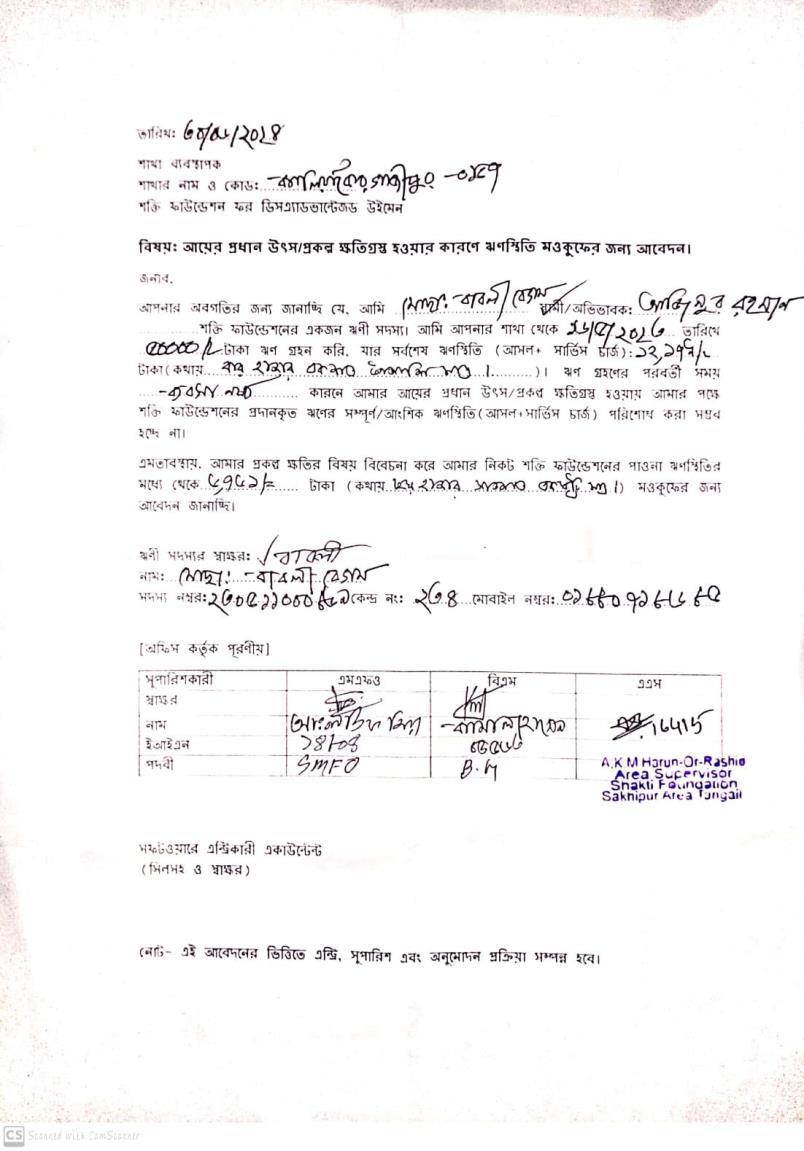 তারিখ: /২০২৪
শাখা ব্যবস্থাপক
শাখার নাম ও কোড: কালিয়াকৈর গাজীপুর -
শক্তি ফাউন্ডেশন ফর ডিসএ্যাডভান্টেজড উইমেন
বিষয়: আয়ের প্রধান উৎস/প্রকল্প ক্ষতিগ্রস্থ হওয়ার কারণে ঋণস্থিতি মওকুফের জন্য আবেদন।
জনাব,
আপনার অবগতির জন্য জানাচ্ছি যে, আমি মোছা: বাবলী বেগম স্বামী/অভিভাবক: রহমান
শক্তি ফাউন্ডেশনের একজন ঋণী সদস্য। আমি আপনার শাখা থেকে তারিখে
টাকা ঋণ গ্রহন করি, যার সর্বশেষ ঋণস্থিতি (আসল+ সার্ভিস চার্জ):
টাকা(কথায় বার হাজার )। ঋণ গ্রহণের পরবর্তী সময়
ব্যবসা নষ্ট কারনে আমার আয়ের প্রধান উৎস/প্রকল্প ক্ষতিগ্রস্থ হওয়ায় আমার পক্ষে
শক্তি ফাউন্ডেশনের প্রদানকৃত ঋণের সম্পূর্ণ/আংশিক ঋণস্থিতি(আসল+সার্ভিস চার্জ) পরিশোধ করা সম্ভব
হচ্ছে না।
এমতাবস্থায়, আমার প্রকল্প ক্ষতির বিষয় বিবেচনা করে আমার নিকট শক্তি ফাউন্ডেশনের পাওনা ঋণস্থিতির
মধ্যে থেকে টাকা (কথায় হাজার সাতশত ) মওকুফের জন্য
আবেদন জানাচ্ছি।
ঋণী সদস্যর স্বাক্ষর: বাবলী
নাম: মোছা: বাবলী বেগম
সদস্য নম্বর: কেন্দ্র নং: ২৩৪ মোবাইল নম্বর:
[অফিস কর্তৃক পূরণীয়]
সুপারিশকারী এমএফও বিএম এএস
স্বাক্ষর
নাম 16415
ইআইএন
পদবী SMFO B.M
A.K M Harun-Or-Rashid
Area Supervisor
Shakti Foundation
Sakhipur Area Tangail
সফটওয়ারে এন্ট্রিকারী একাউন্টেন্ট
(সিলসহ ও স্বাক্ষর)
নোট- এই আবেদনের ভিত্তিতে এন্ট্রি, সুপারিশ এবং অনুমোদন প্রক্রিয়া সম্পন্ন হবে।
CS Scanned with CamScanner